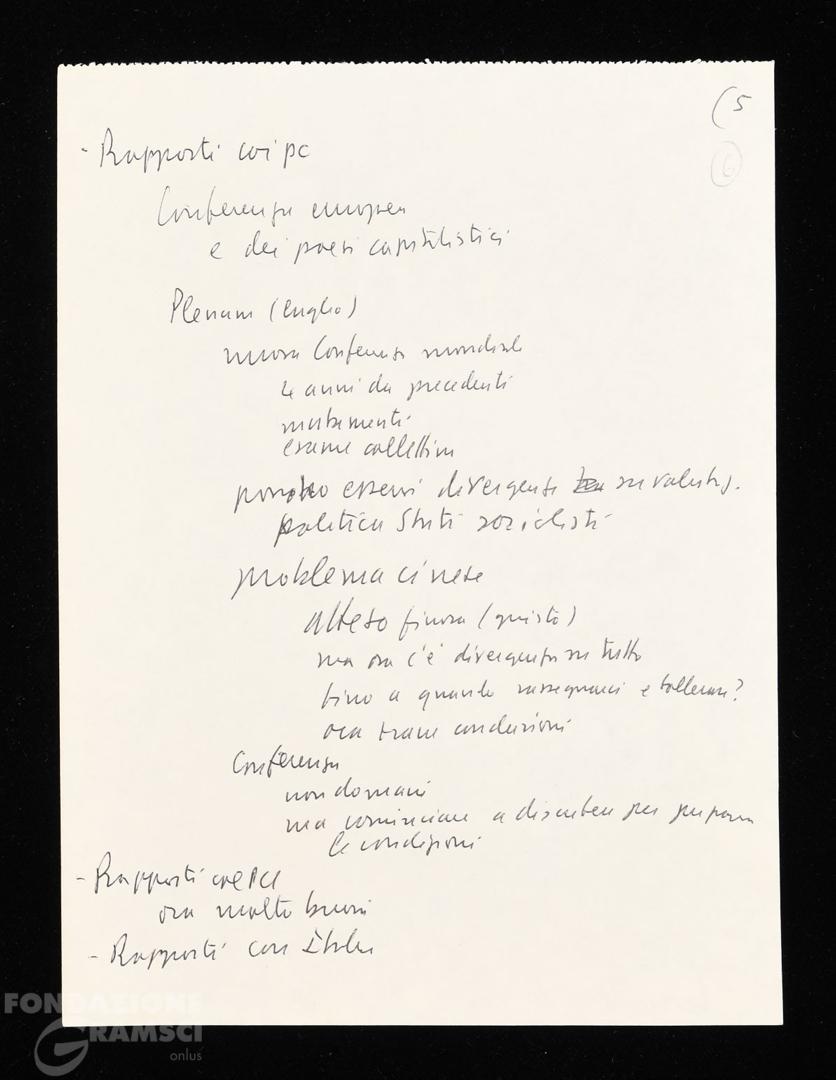 (5
6
- Rapporti coi pc
Conferenza europea
e dei paesi capitalistici
Plenum (luglio)
nuova Conferenza mondiale
4 anni da precedenti
mutamenti
esame collettivo
possono esservi divergenze su valutaz.
politica Stati socialisti
problema cinese
atteso finora (giusto)
ma ora c'è divergenza su tutto
fino a quando rassegnarci e tollerare?
ora trarre conclusioni
Conferenza
non domani
ma cominciare a discutere per preparare
le condizioni
- Rapporti col PCI
ora molto buoni
- Rapporti con Italia
FONDAZIONE
GRAMSCI
onlus